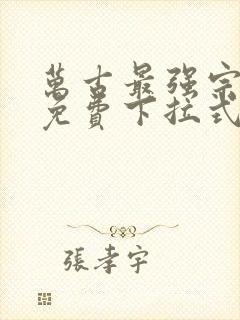 萬古最强宗
免費下拉式
張孝宇